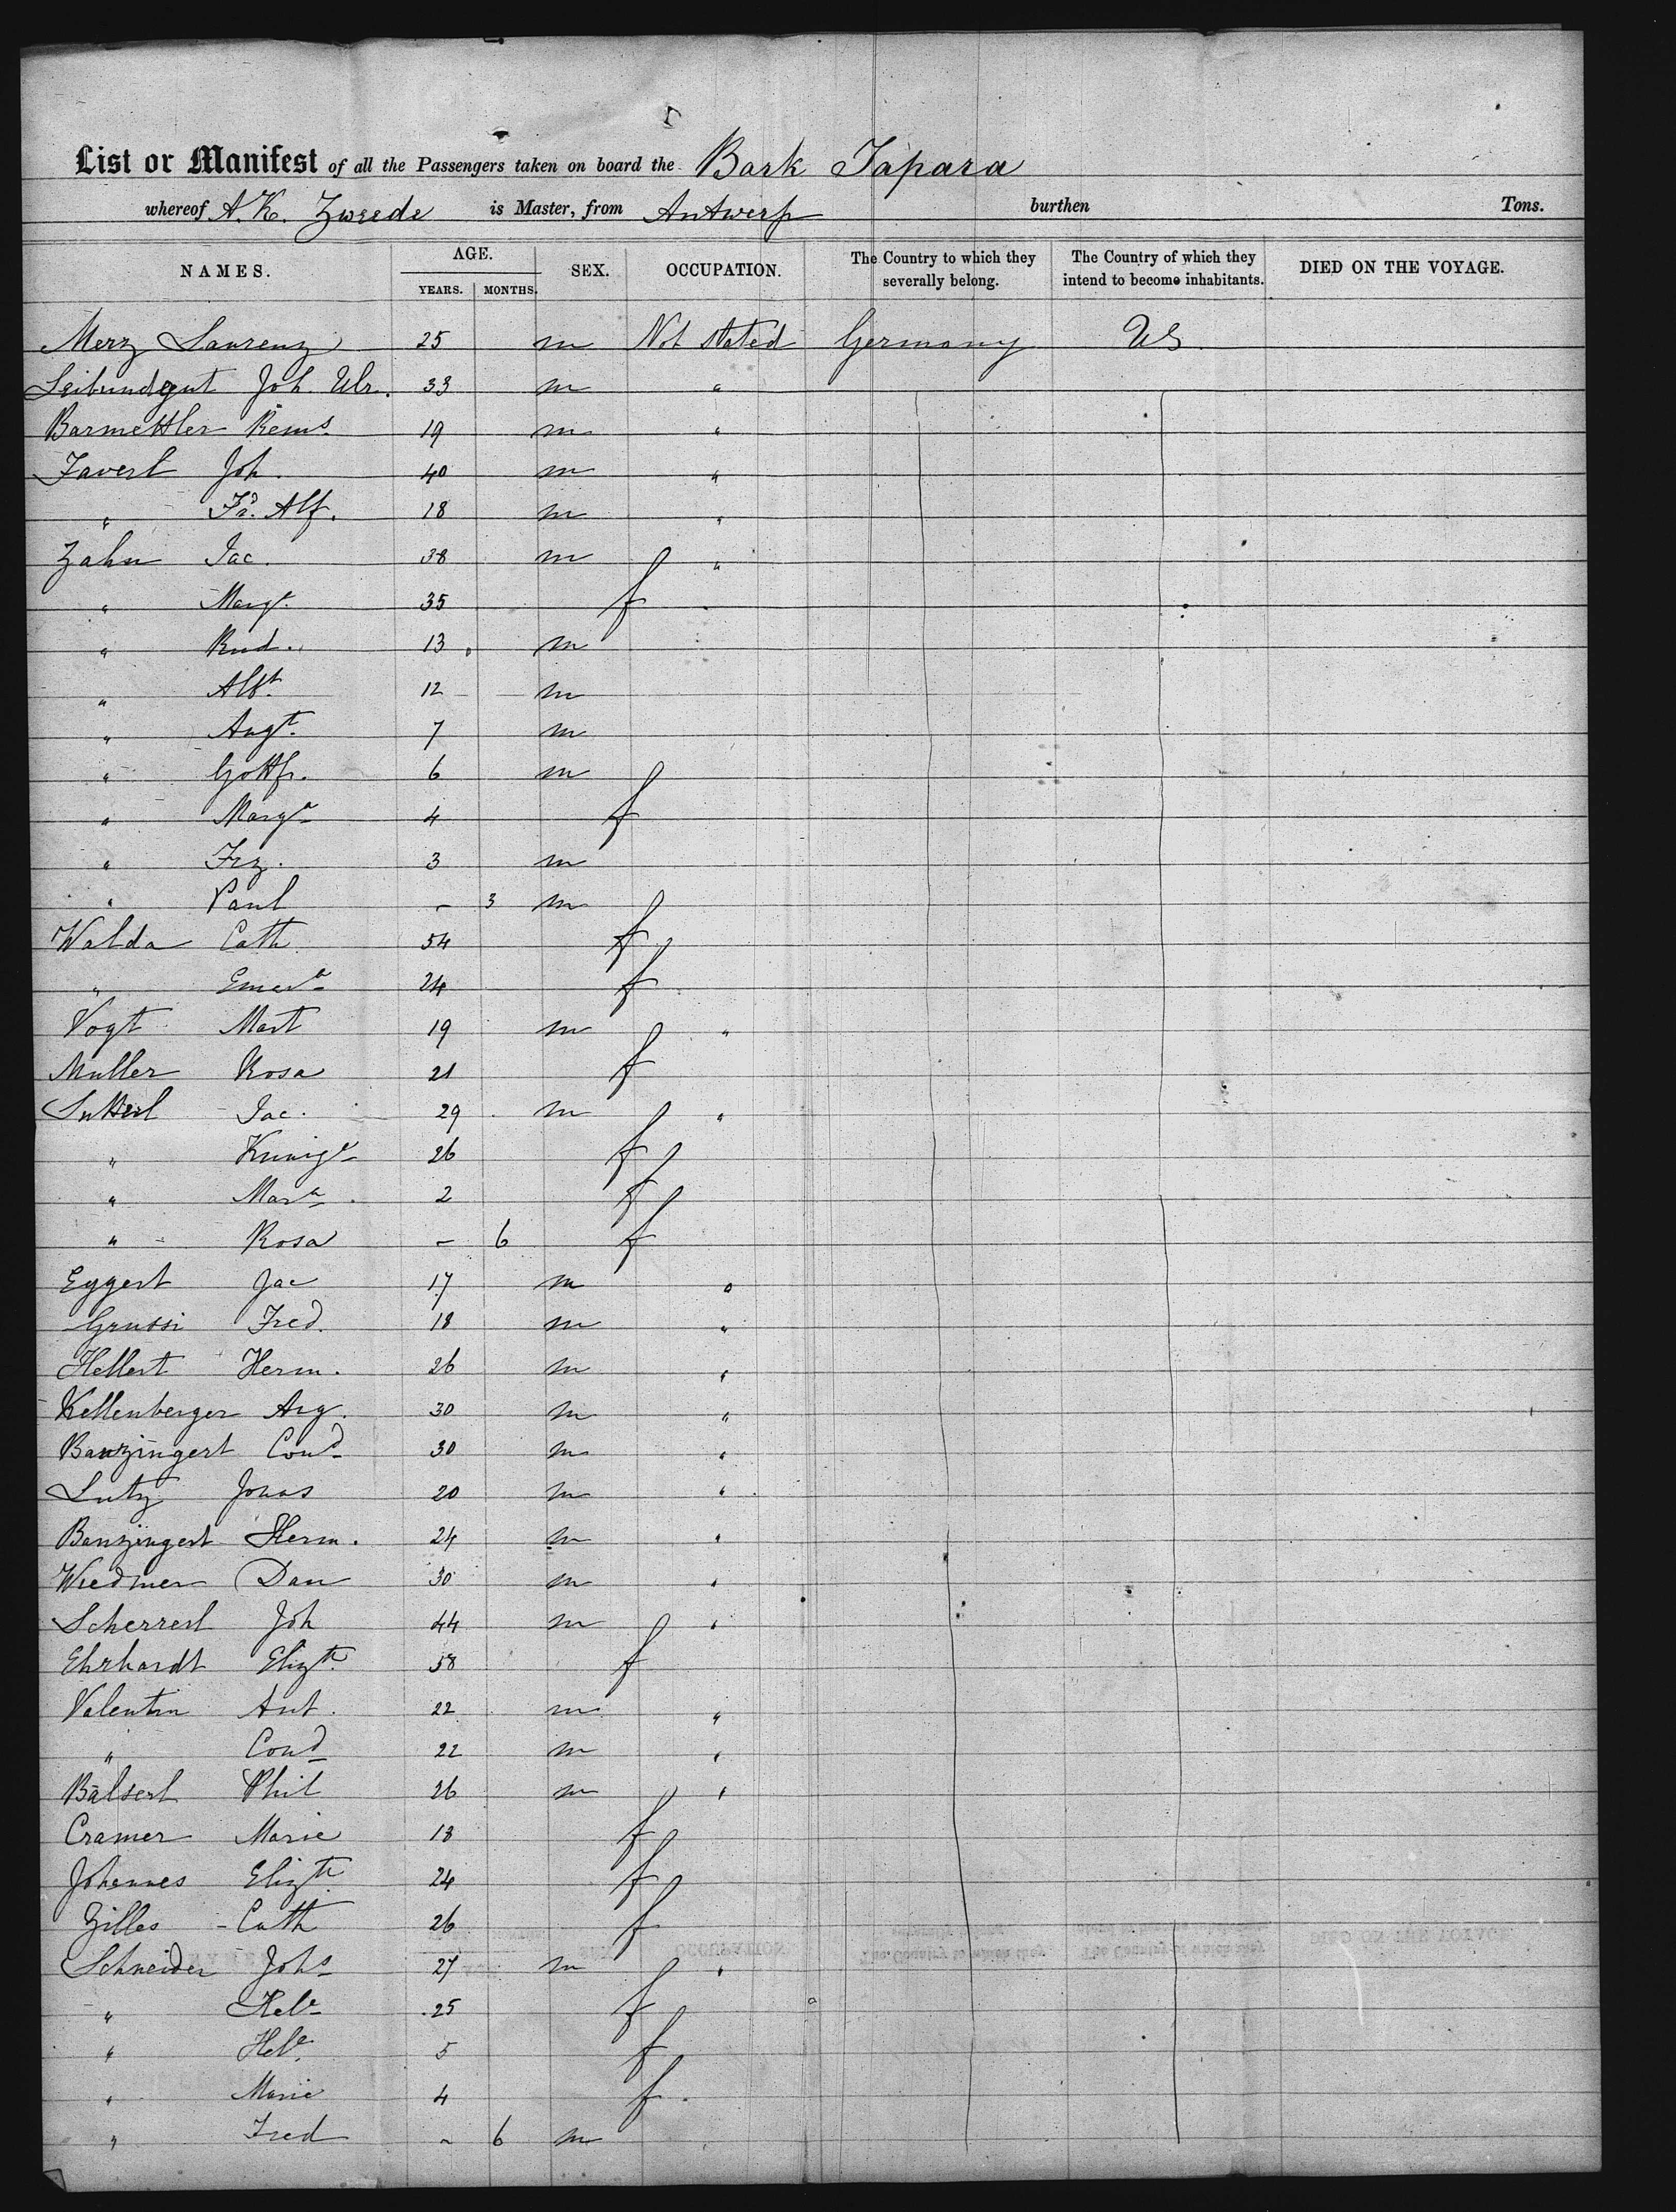 List or Manifest of all the Passengers taken on board the Bark Japara
whereof A. K. Zweede is Master, from Antwerp burthen Tons.
NAMES. AGE. YEARS. MONTHS. SEX. OCCUPATION. The Country to which they severally belong. The Country of which they intend to become inhabitants. DIED ON THE VOYAGE.
Merz Laurenz 25 m Not Stated Germany US
Leibundgut Joh. Ulr. 33 m "
Barmettler Rems. 19 m "
Favert Joh. 40 m "
" Fd. Alf. 18 m "
Zahn Jac. 38 m "
" Margt. 35 f
" Rud. 13 m
" Albt. 12 m
" Augt. 7 m
" Gottfr. 6 m
" Marga 4 f
" Frz. 3 m
" Paul - 3 m
Walda Cath 54 f
" 24 f
Vogt Mart 19 m "
Muller Rosa 21 f
Jac. 29 m "
" 26 f
" Mara 2 f
" Rosa - 6 f
Eggert Jac 17 m "
Grussi Fred. 18 m "
Hellert Herm. 26 m "
Kellenberger Aug. 30 m "
Banzingert Cond 30 m "
Lutz Jonas 20 m "
Banzingert Herm. 24 m "
Wiedmer Dan 30 m "
Scherrert Joh 44 m "
Ehrhardt Elizth. 58 f
Valentin Ant. 22 m "
" Cond 22 m "
Balsert Phil 26 m "
Cramer Marie 18 f
Johannes Elizth 24 f
Zilles Cath 26 f
Schneider Johs 27 m "
" Hele 25 f
" Hele 5 f
" Marie 4 f
" Fred - 6 m